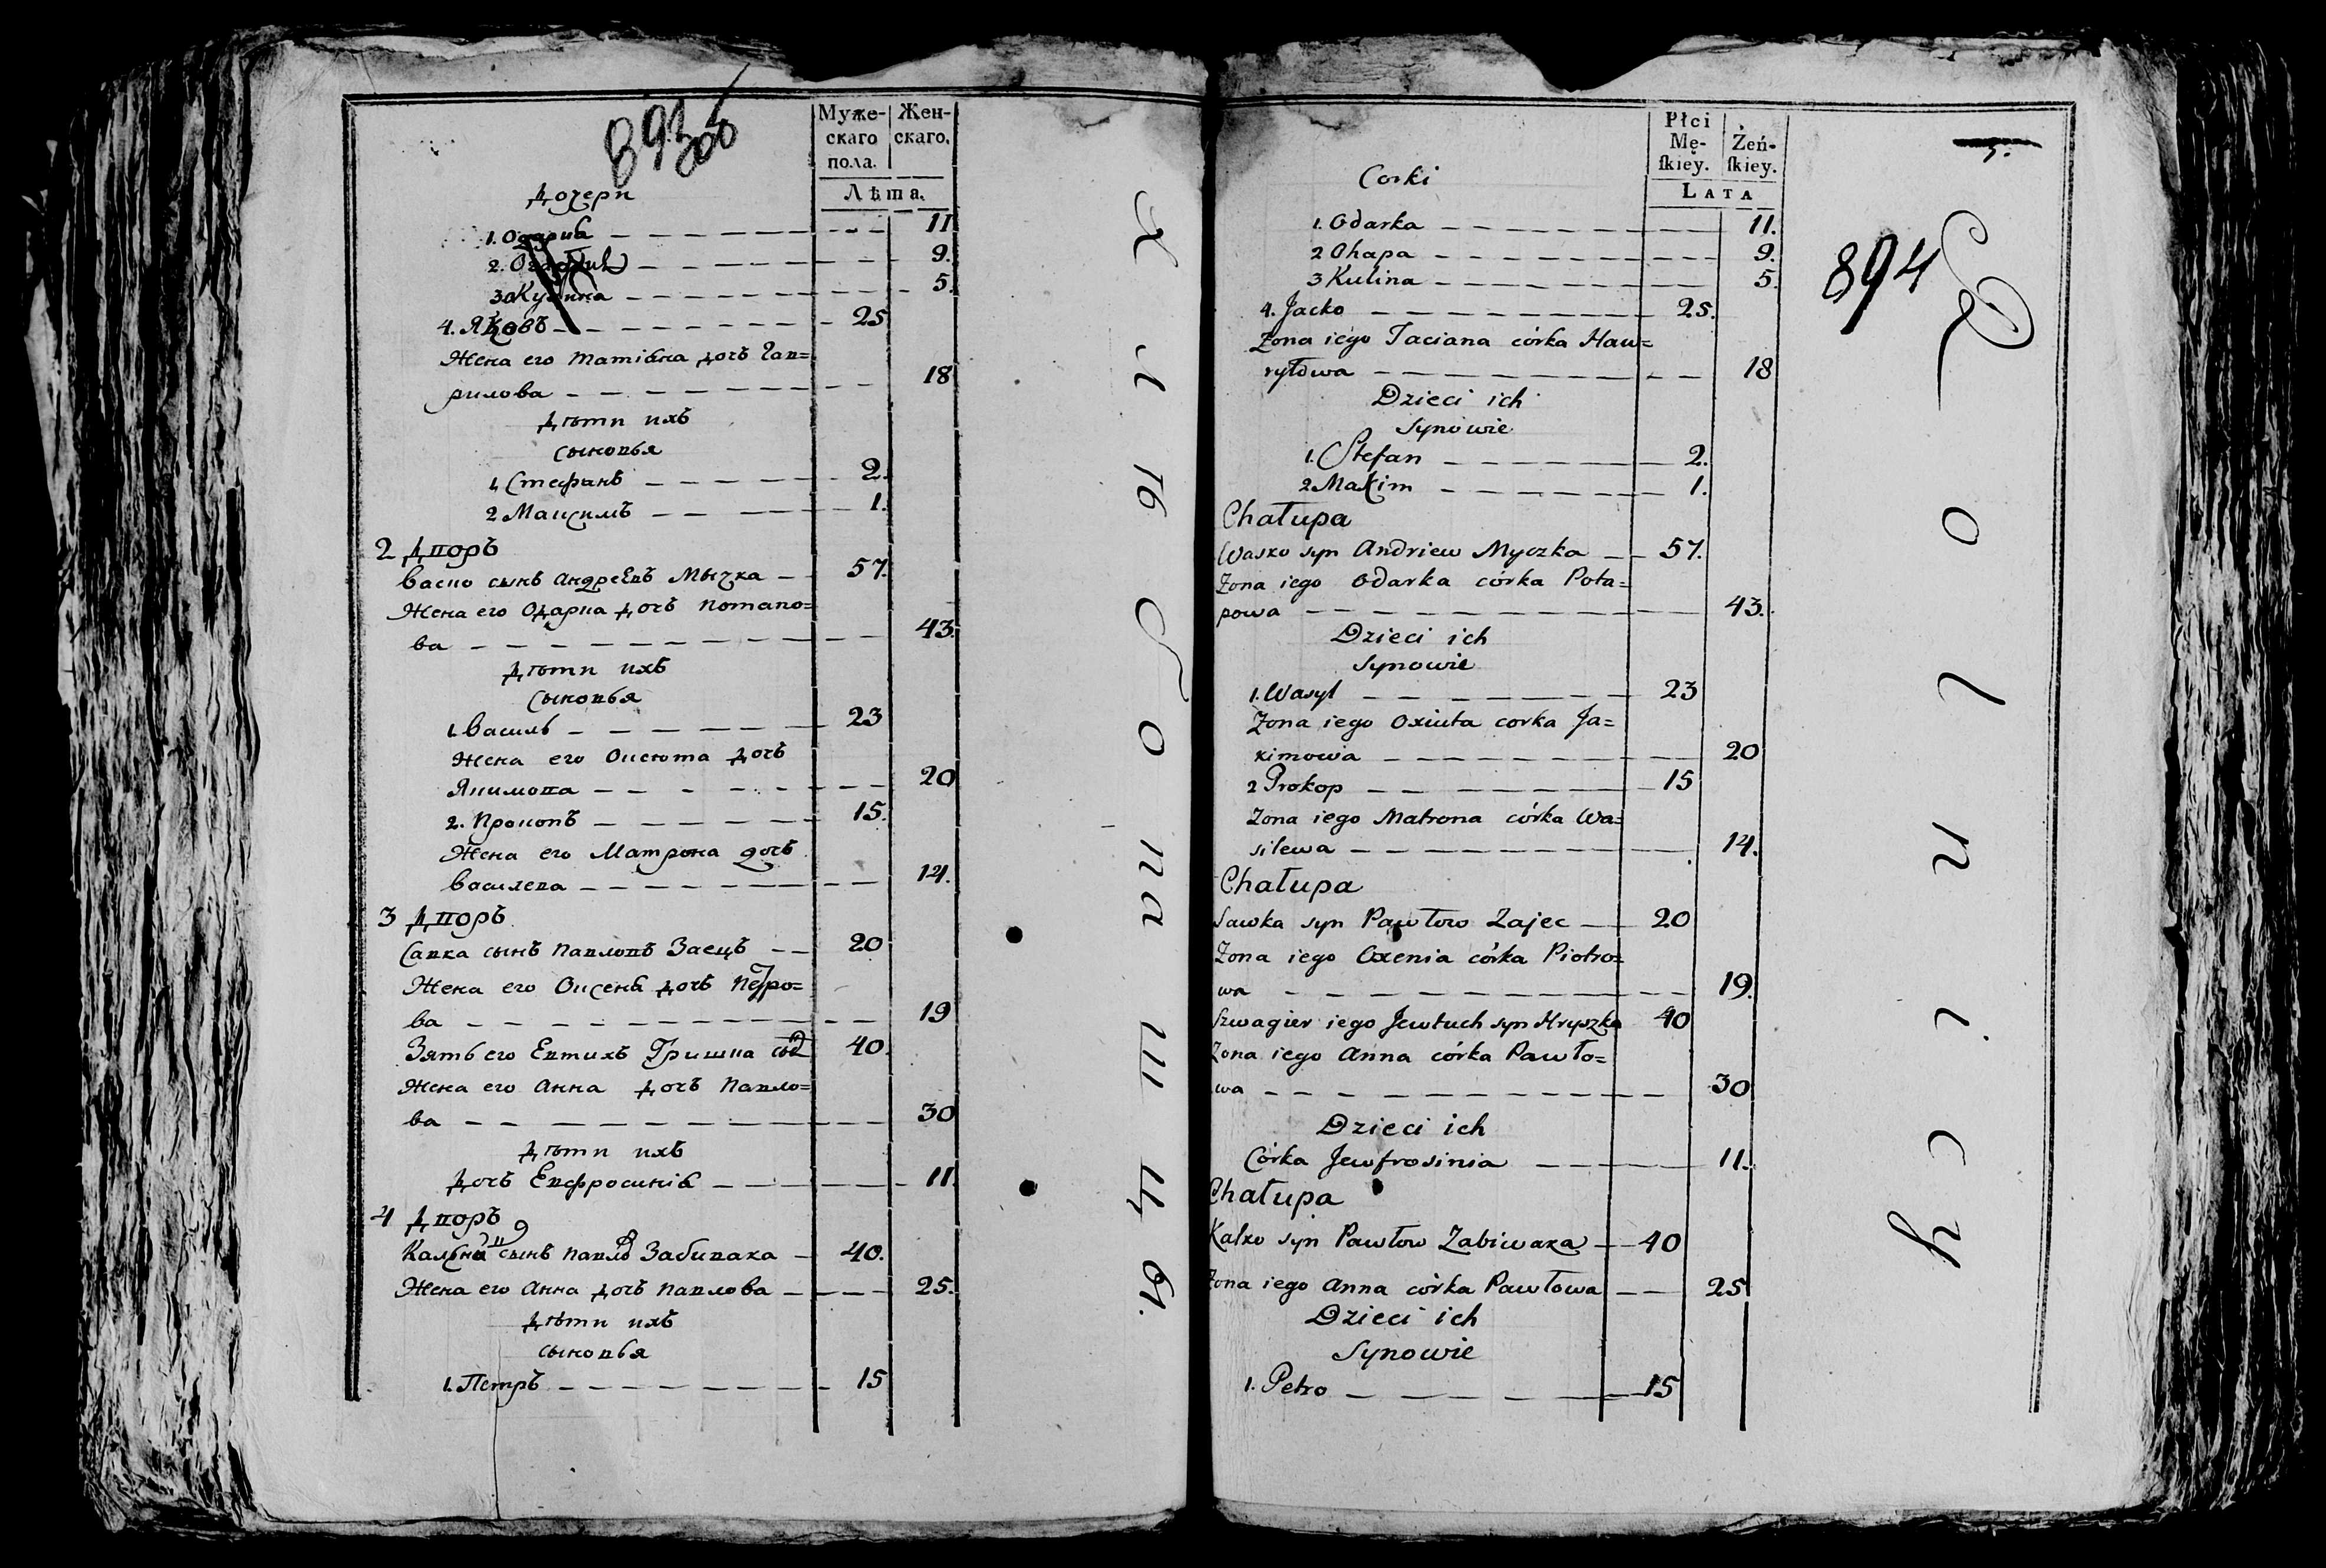 893
Муже-
скаго
пола.
Жен-
скаго.
Лѣта.
Дочери
1. Одарка — 11
9.
3 Кулина — 5.
4. Яковъ — 25
Жена его Татіана дочъ Гав=
рилова — 18
Дѣти ихъ
Сыновья
1. Стефанъ — 2.
2 Максимъ — 1.
2 Дворъ
Васко сынъ Андреевъ Мычка — 57.
Жена его Одарка дочъ Потапо=
ва — 43.
Дѣти ихъ
Сыновья
1. Василь — 23
Жена его Оксюта дочъ
Якимова — 20
2. Прокопъ — 15.
Жена его Матрона дочъ
Василева — 14.
3 Дворъ
Савка сынъ Павловъ Заецъ — 20
Жена его Оксенія дочъ Петро=
ва — 19
Зять его Евтихъ Гришка сынъ 40.
Жена его Анна дочъ Павло=
ва — 30
Дѣти ихъ
Дочъ Евфросинія — 11.
4 Дворъ
сынъ Павло Забивака — 40.
Жена его Анна дочъ Павлова — 25.
Дѣти ихъ
Сыновья
1. Петръ — 15
Płci
Mę-
ſkiey.
Żeń-
ſkiey.
LATA
5.
894
Corki
1. Odarka — 11.
2 Ohapa — 9.
3 Kulina — 5.
4. Jacko — 25.
Zona iego Taciana córka Haw=
ryłowa — 18
Dzieci ich
Synowie
1. Stefan — 2.
2 Maxim — 1.
Chałupa
Wasko syn Andriew Myczka — 57.
Zona iego Odarka córka Pota=
powa — 43.
Dzieci ich
Synowie
1. Wasyl — 23
Zona iego Oxiuta corka Ja=
kimowa — 20
2 Prokop — 15
Zona iego Matrona córka Wa=
silewa — 14.
Chałupa
Sawka syn Pawłow Zajec — 20
Zona iego Oxenia córka Piotro=
wa — 19.
Szwagier iego Jewtuch syn Hryszka 40
Zona iego Anna córka Pawło=
wa — 30
Dzieci ich
Córka Jewfrosinia — 11.
Chałupa
Kalko syn Pawłow Zabiwaka — 40
Zona iego Anna córka Pawłowa — 25
Dzieci ich
Synowie
1. Petro — 15
Rolnicy